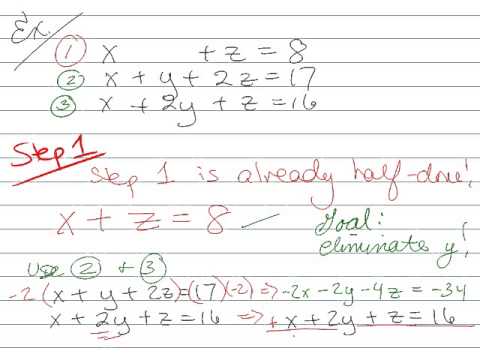 Ex.
① x + z = 8
② x + y + 2z = 17
③ x + 2y + z = 16
Step 1
Step 1 is already half-done!
x + z = 8 ✓
Goal:
eliminate y!
Use ② + ③
-2(x + y + 2z) = (17)(-2) => -2x - 2y - 4z = -34
x + 2y + z = 16 => + x + 2y + z = 16